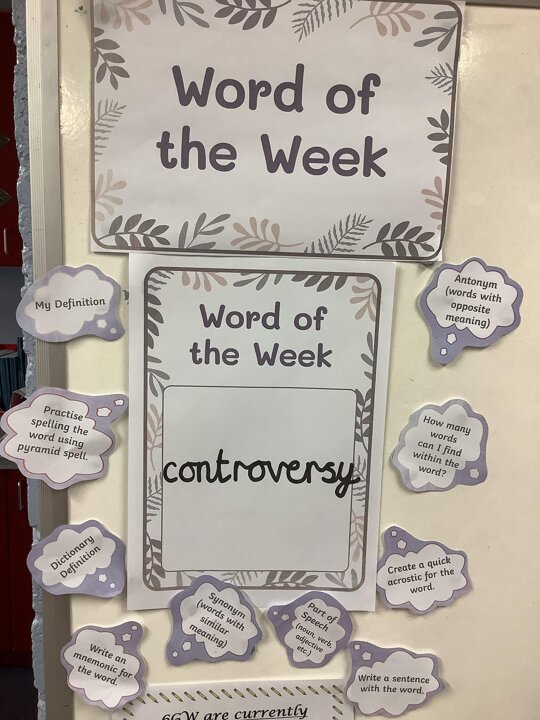 Word of
the Week
Word of
the Week
controversy
My Definition
Practise
spelling the
word using
pyramid spell.
Dictionary
Definition
Write an
mnemonic for
the word.
Synonym
(words with
similar
meaning)
Part of
Speech
(noun, verb,
adjective
etc.)
Antonym
(words with
opposite
meaning)
How many
words
can I find
within the
word?
Create a quick
acrostic for the
word.
Write a sentence
with the word.
6GW are currently